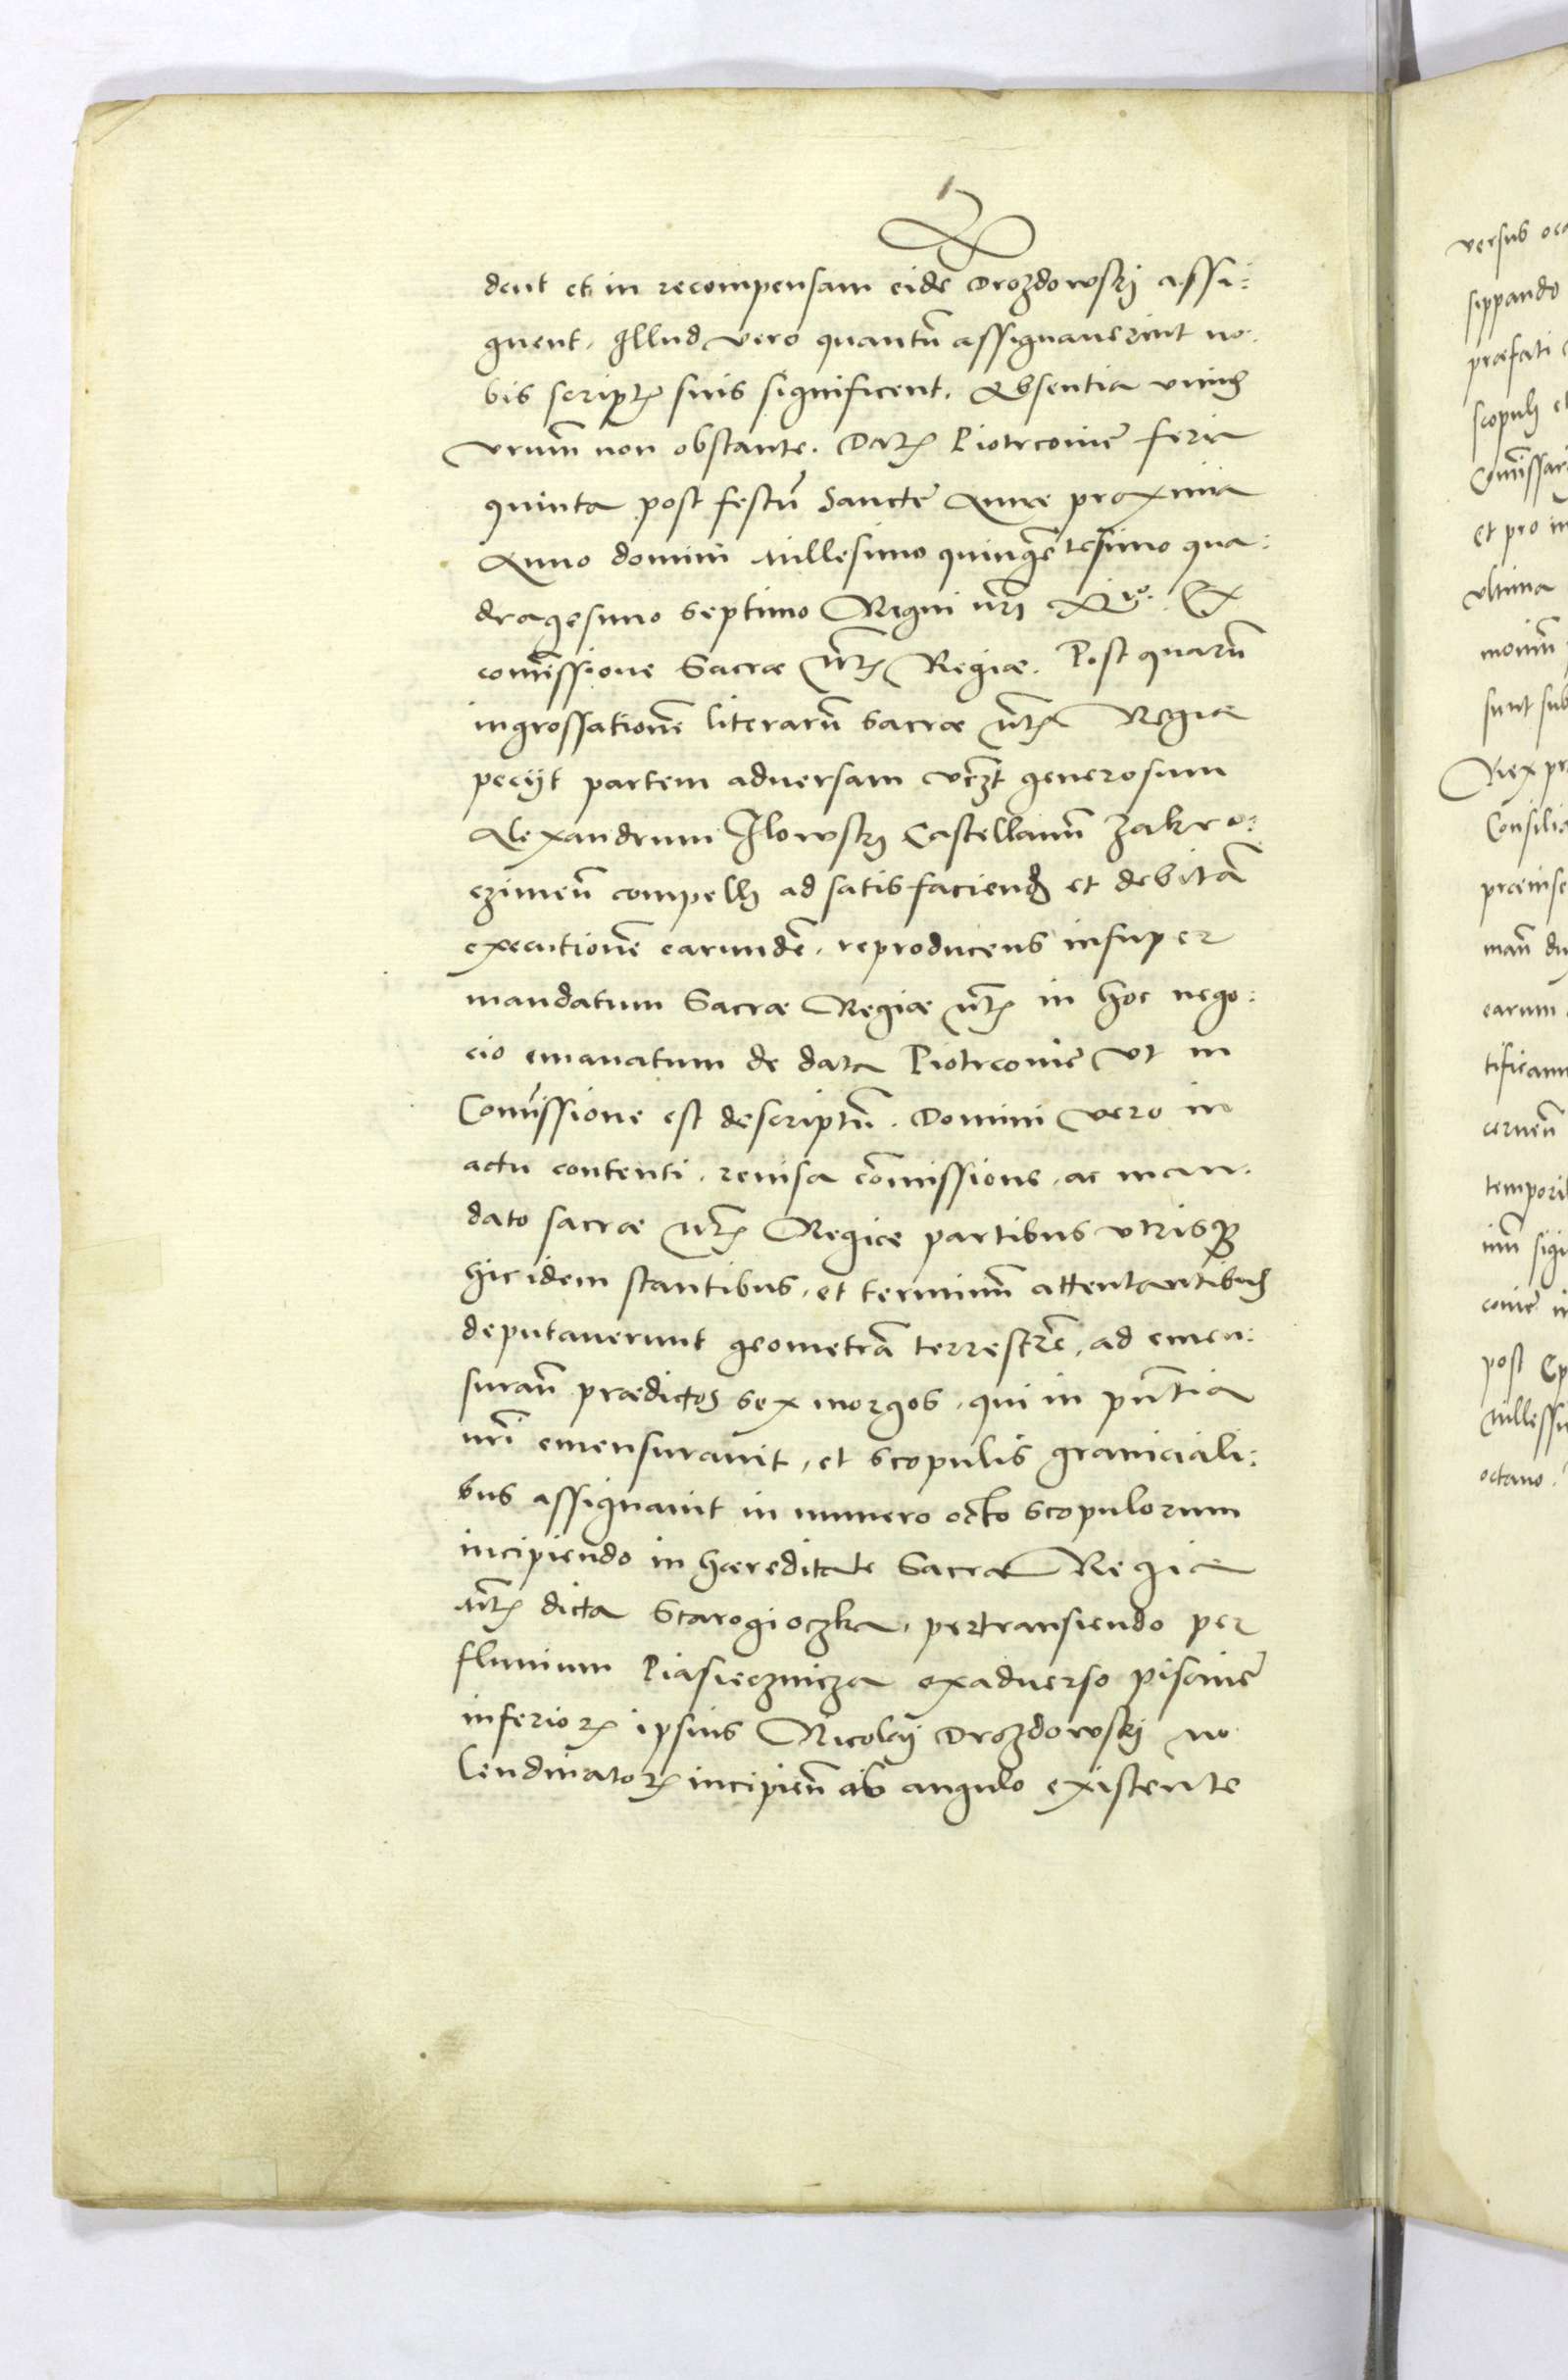 dent et in recompensam eidē Drozdowskj assi:
gnent. Illud vero quantū assignauerint no.
bis scriptꝭ suis significent. Absentia vniꝰ
vrūm non obstante. Datꝭ Piotrcouiē feria
quinta post festū Sanctę Annæ proxima
Anno domini Millesimo quingētesimo qua:
dragesimo septimo Regni nr̃i
com̃issione Sacræ Mtꝭ Regiæ. Post quarū
ingrossationē literarū Sacræ Mtꝭ Regiæ
pecijt partem aduersam vczt generosum
Alexandrum Ilowskj Castellanū Zakro:
czimeñ compellj ad satisfacienđ et debitā
executionē earundē. reproducens insuper
mandatum Sacræ Regiæ Mtꝭ in hoc nego:
cio emanatum de data Piotrcouiē vt in
Com̃issione est descriptū. Domini vero in
actu contenti. reuisa cōmissione. ac man.
dato sacræ Mtꝭ Regiæ partibus vtrisqꝫ
hic idem stantibus. et terminū attentantibꝰ
deputauerunt geometrā terrestrē. ad emen:
surañ prædictos sex morgos. qui in pñtia
nrī emensurauit. et scopulis graniciali:
bus assignauit in numero octo scopulorum
incipiendo in hæreditate Sacræ Regiæ
Mtꝭ dicta Starogioczka. pertransiendo per
fluuium Piasiecznicza exaduerso piscinē
inferiorꝭ ipsius Nicolaj Drozdowskj mo
lendinatorꝭ incipieñ ab angulo existente
versus
sippando
præfati
scopulj et
Com̃issar
et pro in
vltima
monim
sunt sub
Rex pr
Consilia
præinse
mañ du
earum
tificam
cerneñ
tempori
nnm sigi
couiē in
post Ep
Millessi
octauo.